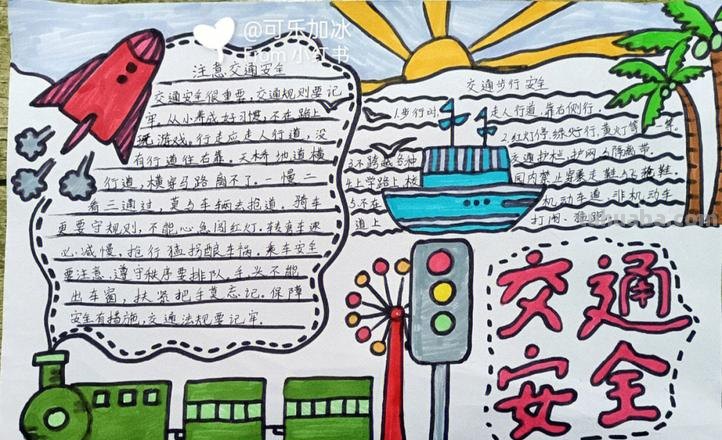 @可乐加冰
From 小红书
注意交通安全
交通安全很重要,交通规则要记
牢,从小养成好习惯,不在路上
玩游戏。行走应走人行道,没
有行道往右靠。天桥地道横
行道,横穿马路离不了。一慢二
看三通过,莫与车辆去抢道。骑车
更要守规则,不能心急闯红灯。转弯车速
必减慢,抢行猛拐酿车祸。乘车安全
要注意,遵守秩序要排队。手头不能
出车窗,扶紧把手莫忘记。保障
安全有措施,交通法规要记牢。
交通步行安全
1.步行时 走人行道,靠右侧行。
2.红灯停,绿灯行,黄灯等一等。
3.不跨越各种 交通护栏,护网与隔离带。
4.上学路上校 园内禁止穿暴走鞋
5.不在 机动车道、非机动车
道上 打闹、猛跑
交通
安全